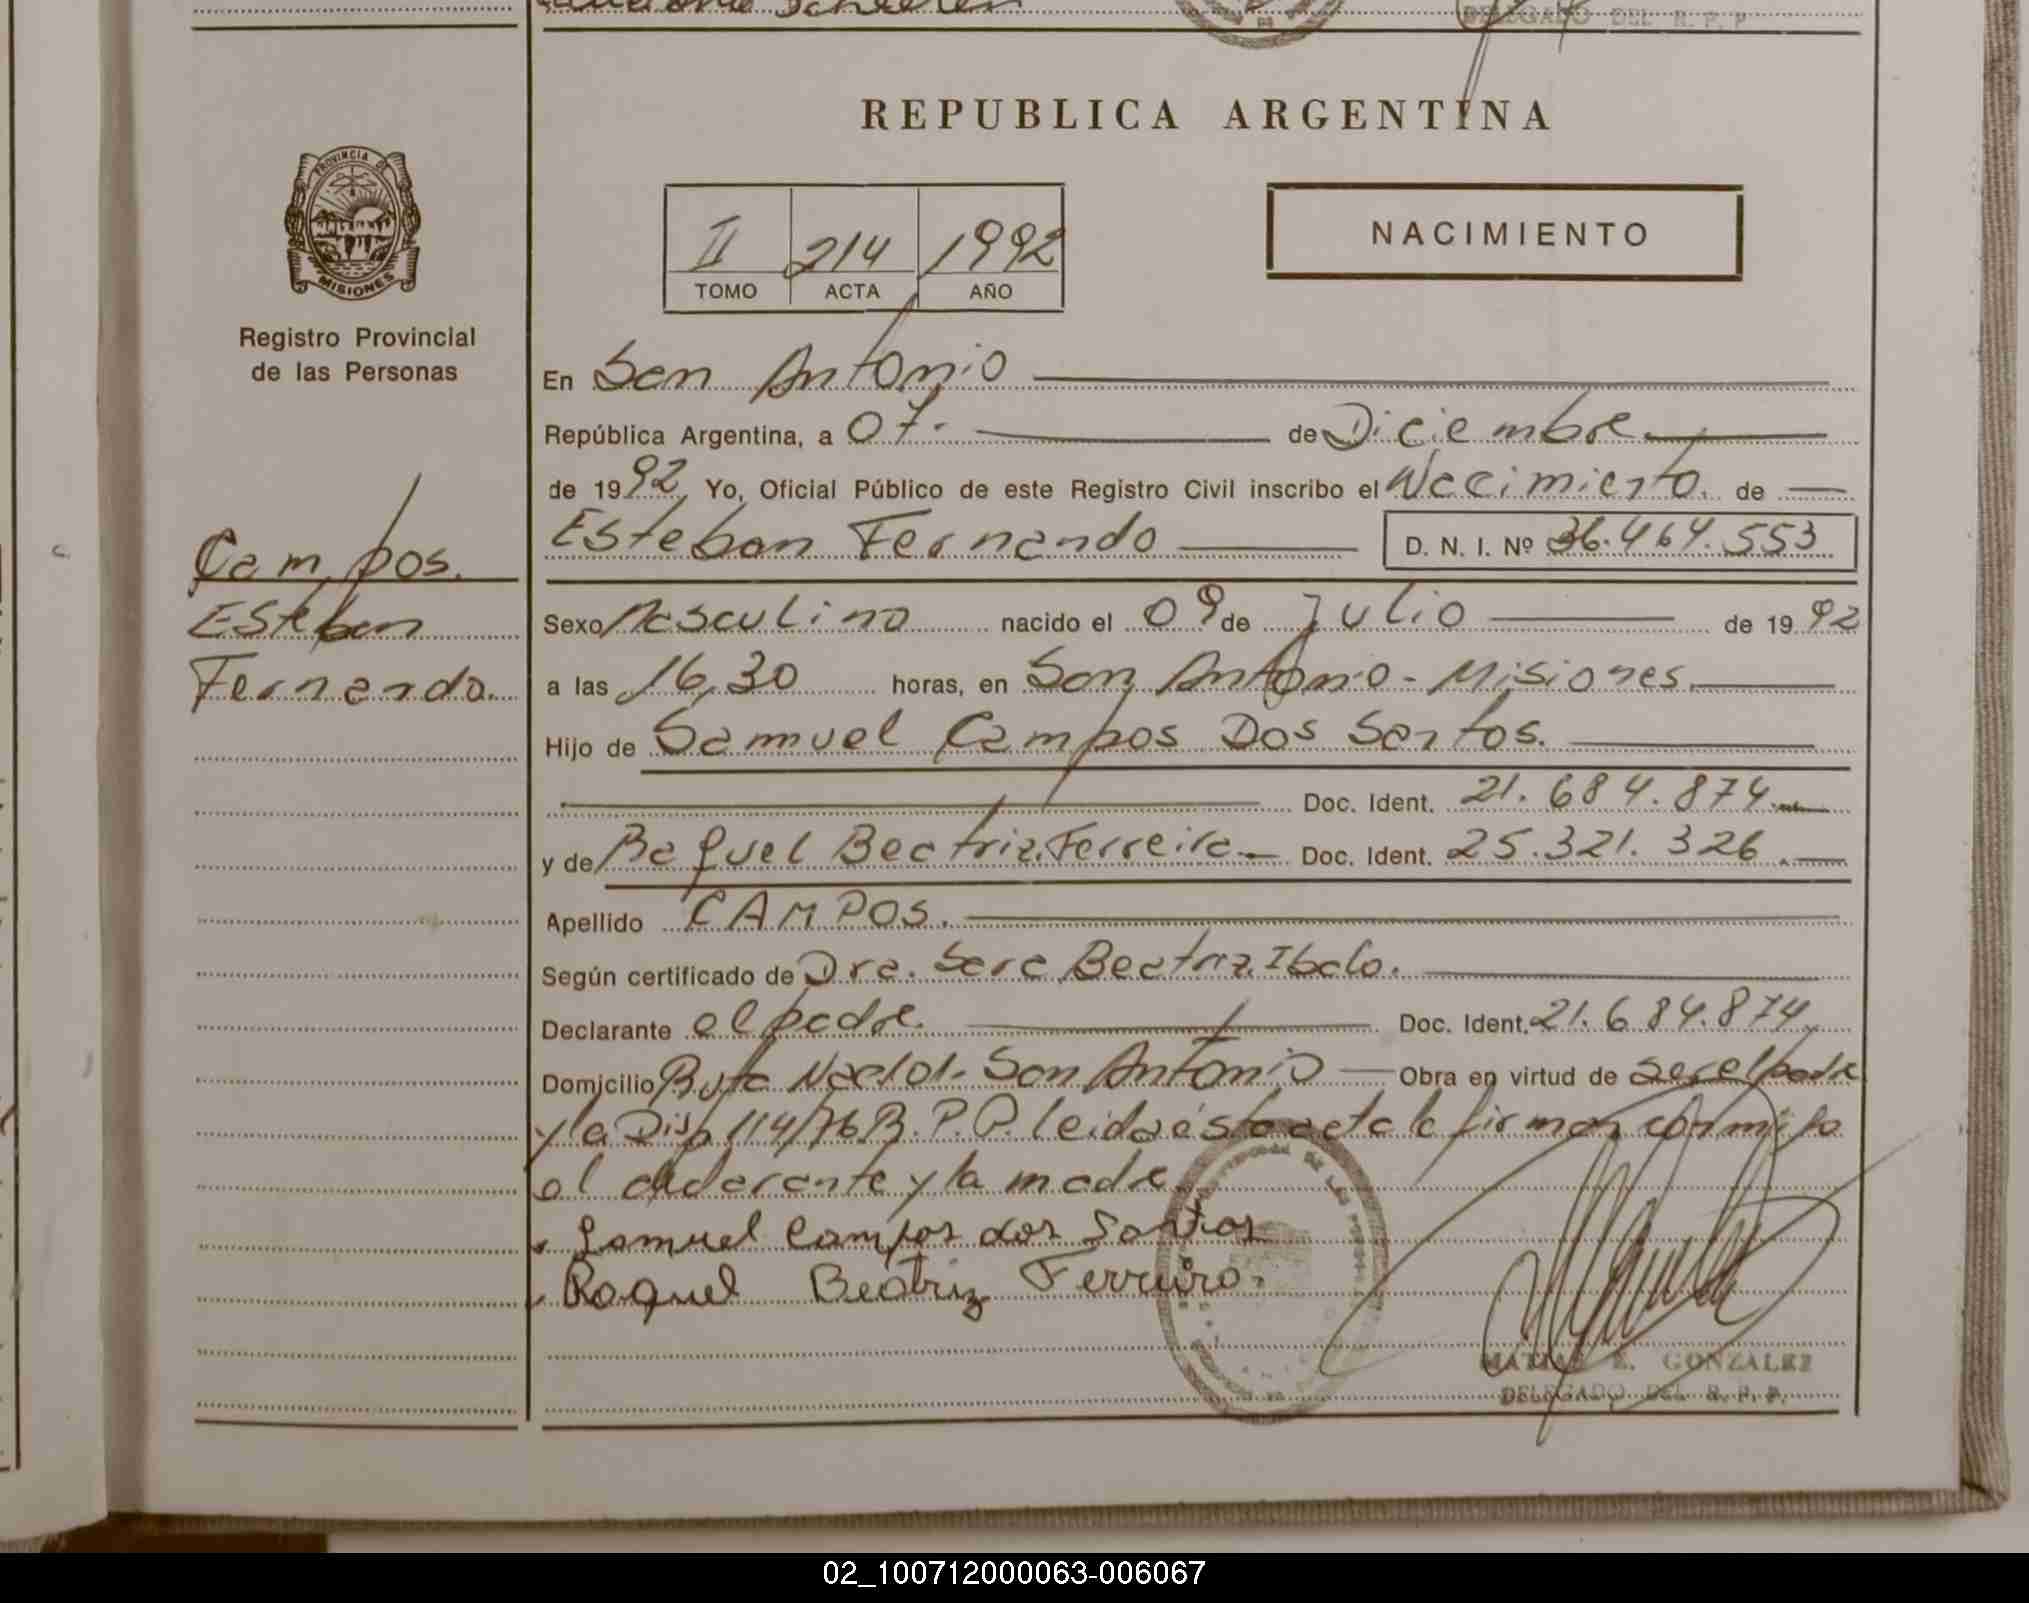 DELEGADO DEL R. P. P.
REPUBLICA ARGENTINA
PROVINCIA DE
MISIONES
Registro Provincial
de las Personas
II 214 1992
TOMO ACTA AÑO
NACIMIENTO
Campos.
Esteban
Fernando.
En San Antonio
República Argentina, a 07. de Diciembre.
de 1992 Yo, Oficial Público de este Registro Civil inscribo el Nacimiento. de
Esteban Fernando D. N. I. Nº 36.464.553
Sexo Masculino nacido el 09 de Julio de 1992
a las 16,30 horas, en San Antonio - Misiones.
Hijo de Samuel Campos Dos Santos.
Doc. Ident. 21.684.874.
y de Raquel Beatriz Ferreira. Doc. Ident. 25.321.326.
Apellido CAMPOS.
Según certificado de Dra. Sara Beatriz Ibalo.
Declarante el padre. Doc. Ident. 21.684.874
Domicilio Ruta San Antonio Obra en virtud de ser el padre
y la Disp 114/76 R.P.P. leida ésta acta la firman conmigo
el declarante y la madre
Samuel Campos dos Santos
Raquel Beatriz Ferreira.
E. GONZALEZ
DELEGADO DEL R. P. P.
02_100712000063-006067